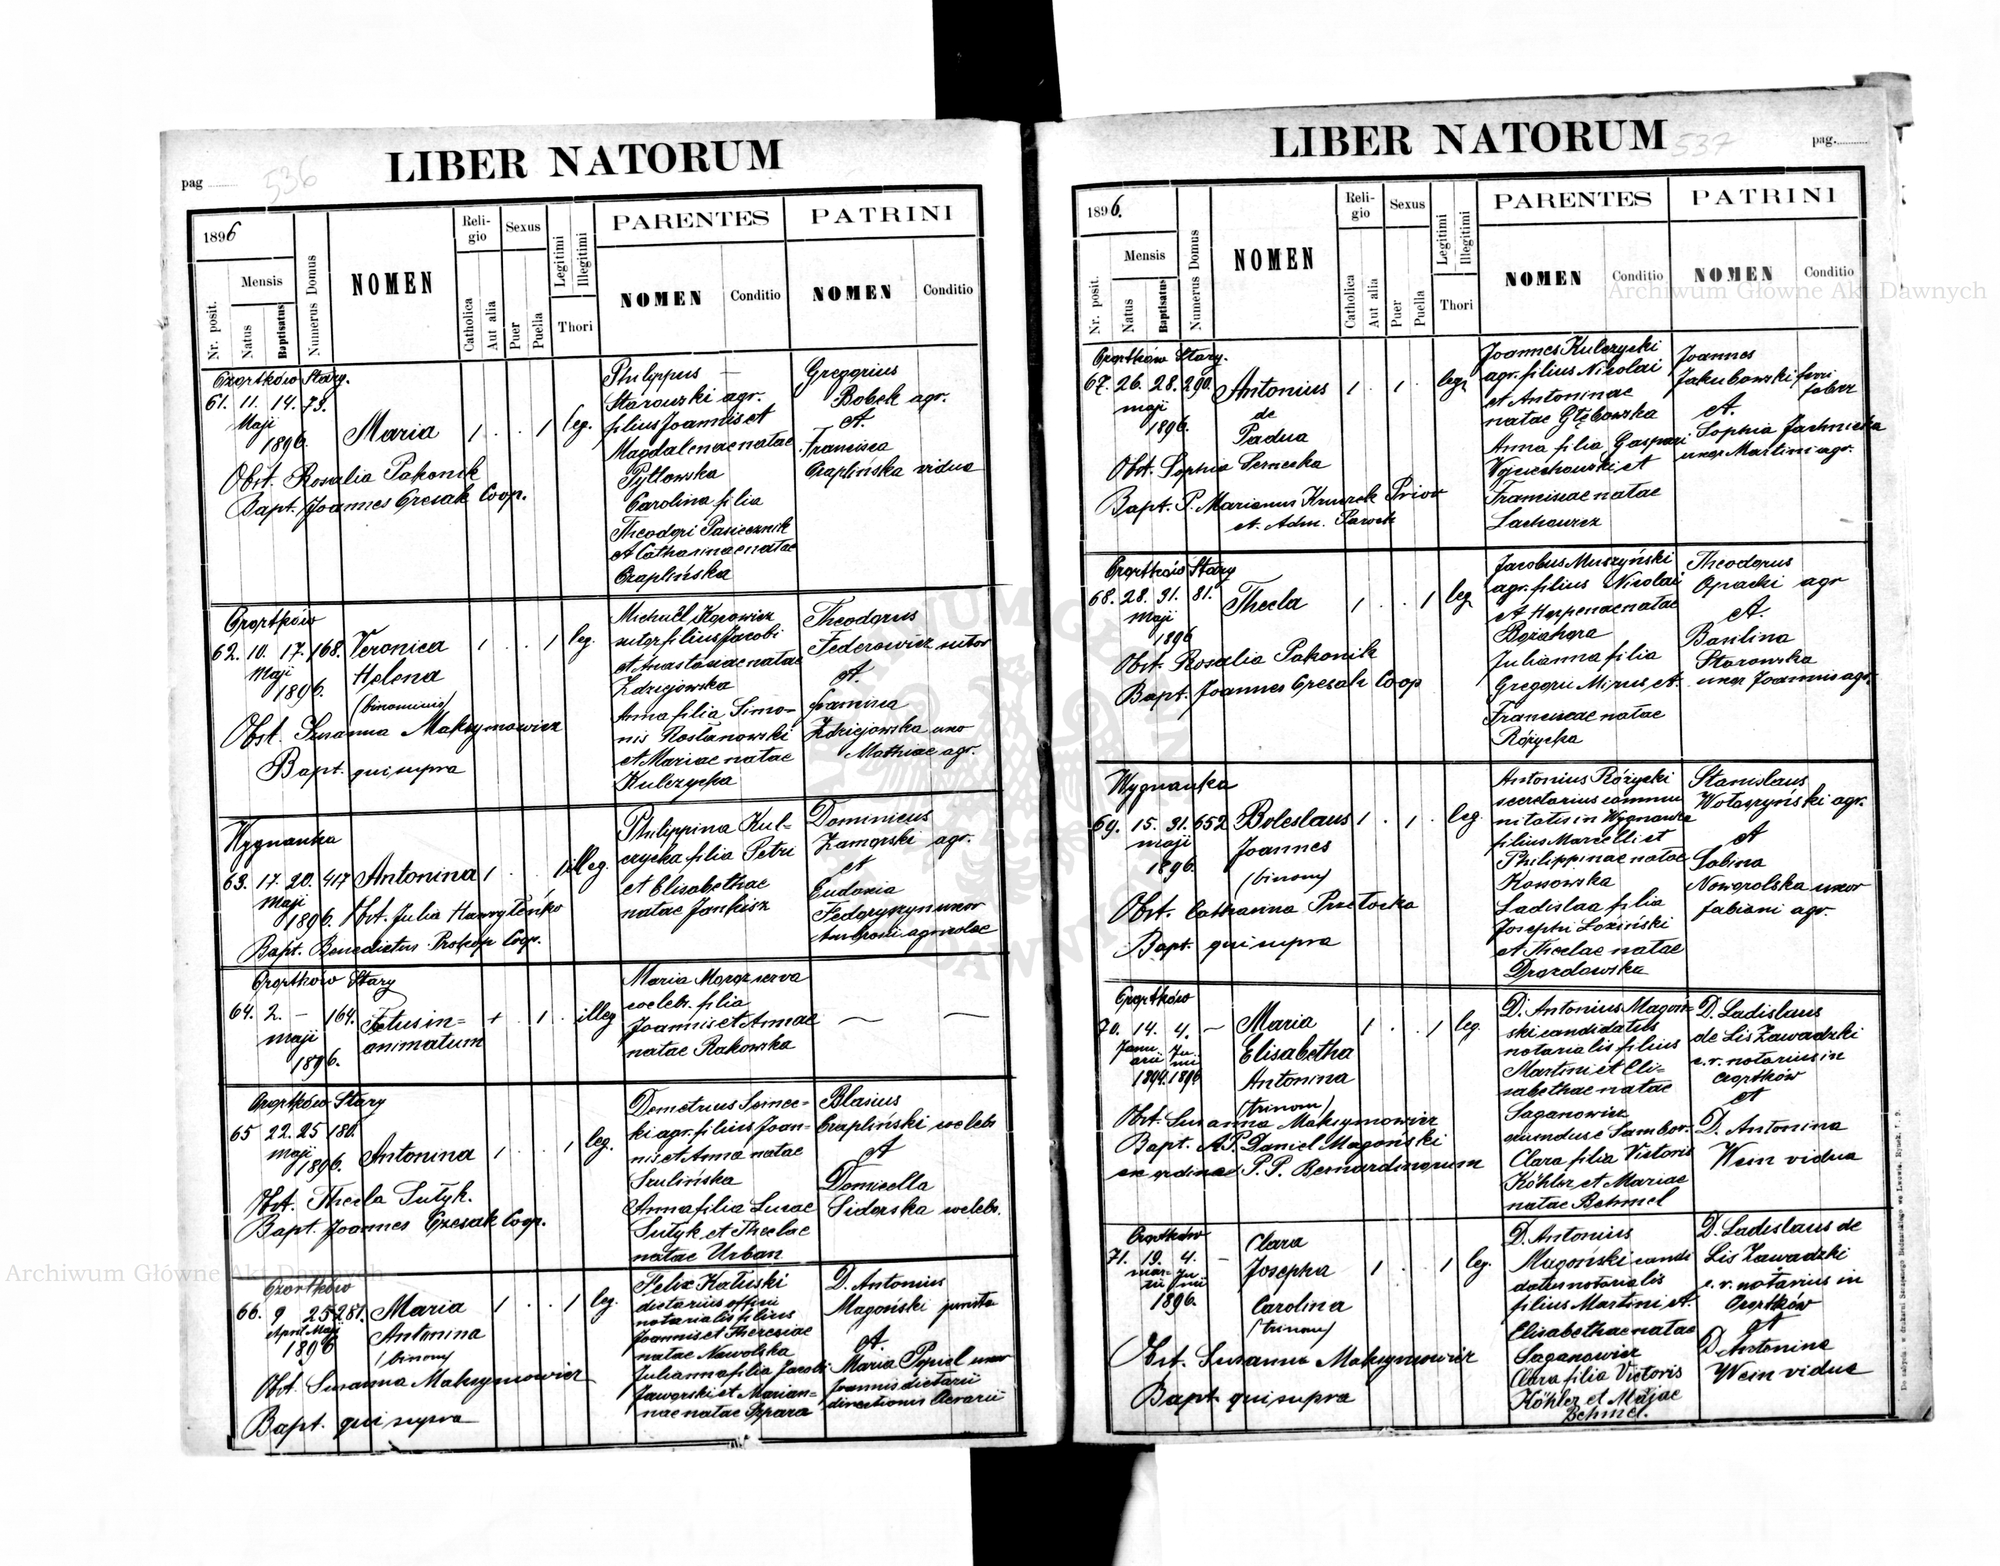 LIBER NATORUM
pag
536
1896
Mensis
Nr. posit.
Natus
Baptisatus
Numerus Domus
NOMEN
Religio
Catholica
Aut alia
Sexus
Puer
Puella
Legitimi
Illegitimi
Thori
PARENTES
NOMEN
Conditio
PATRINI
NOMEN
Conditio
Czortków Stary.
61. 11. 14. 73.
Maji
1896.
Maria
1 . . 1 leg.
Obst. Rosalia Pakonik
Bapt. Joannes Czesak Coop.
Philippus
Starowski agr.
filius Joannis et
Magdalenae natae
Pytlowska
Carolina filia
Theodori Pasiecznik
et Catharinae natae
Czaplińska
Gregorius
Bobek agr.
et.
Francisca
Czaplińska vidua
Czortków
62. 10. 17. 168.
Maji
1896.
Veronica
Helena
(binomius)
1 . . 1 leg.
Obst. Susanna Maksymowicz
Bapt. qui supra
Michaël Kopowicz
sutor filius Jacobi
et Anastasiae natae
Zdziejowska
Anna filia Simo-
nis Rostanowski
et Mariae natae
Kulczycka
Theodorus
Federowicz sutor
et.
Francisca
Zdziejowska uxor
Mathiae agr.
Wygnanka
63. 17. 20. 417
Maji
1896.
Antonina
1 . . 1 illeg.
Obst. Julia Hawryleńko
Bapt. Benedictus Prokop Coop.
Philippina Kul-
czycka filia Petri
et Elisabethae
natae Jankisz
Dominicus
Zamorski agr.
et
Eudoxia
Fedoryszyn uxor
Ambrosii agricolae
Czortków Stary
64. 2. – 164.
maji
1896.
Fetus in=
animatum
+ . 1 . illeg
Maria Moroz serva
coelebs. filia
Joannis et Annae
natae Rakowska
Czortków Stary
65 22. 25 180.
maji
1896.
Antonina
1 . . 1 leg.
Obst. Thecla Sutyk.
Bapt. Joannes Czesak Coop.
Demetrius Semec-
ki agr. filius Joan-
nis et Anna natae
Szulińska
Anna filia Lucae
Sutyk et Theclae
natae Urban
Blasius
Czapliński coelebs
et
Domicella
Sidorska coelebs.
Czortków
66. 9 25 281.
April Maji
1896
Maria
Antonina
(binom)
1 . . 1 leg.
Obst. Susanna Maksymowicz
Bapt. qui supra
Felix Kaluski
dietarius officii
notarialis filius
Joannis et Theresiae
natae Nawolska
Julianna filia Jacobi
Jaworski et Marian=
nae natae Szpara
D. Antonius
Magoński jurista
et.
Maria Popiel uxor
Joannis dietarii
directionis Aerarii
LIBER NATORUM
537
pag.
1896.
Mensis
Nr. posit.
Natus
Baptisatus
Numerus Domus
NOMEN
Religio
Catholica
Aut alia
Sexus
Puer
Puella
Legitimi
Illegitimi
Thori
PARENTES
NOMEN
Conditio
PATRINI
NOMEN
Conditio
Czortków Stary.
67. 26. 28. 290.
maji
1896.
Antonius
de
Padua
1 . 1 . leg
Obst. Sophia Semecka
Bapt. P. Marianus Kruczek Prior
et. Adm. Paroch
Joannes Kulczycki
agr. filius Nicolai
et Antoninae
natae Głębowska
Anna filia Gaspari
Wojciechowski et
Franciscae natae
Lachowicz
Joannes
Jakubowski ferri
faber
et.
Sophia Jachnicka
uxor Martini agr.
Czortków Stary
68. 28. 31. 81.
Maji
1896
Thecla
1 . . 1 leg
Obst. Rosalia Pakonik
Bapt. Joannes Czesak Coop
Jacobus Muszyński
agr. filius Nicolai
et Agrippinae natae
Bożahora
Julianna filia
Gregorii Mizus et.
Franciscae natae
Różycka
Theodorus
Opacki agr
et.
Basilina
Starowska
uxor Joannis agr.
Wygnanka
69. 15. 31. 652
maji
1896.
Boleslaus
Joannes
(binom)
1 . 1 . leg.
Obst. Catharina Przetocka
Bapt. qui supra
Antonius Różycki
secretarius commu
nitatis in Wygnanka
filius Marcelli et
Philippinae natae
Kossowska
Ladislaa filia
Josephi Łoziński
et Theclae natae
Drozdowska
Stanislaus
Wołoszyński agr.
et
Sabina
Nowosolska uxor
Fabiani agr.
Czortków
70. 14. 4. –
Janu Ju
arii nii
1894. 1896
Maria
Elisabetha
Antonina
(trinom)
1 . . 1 leg.
Obst. Susanna Maksymowicz
Bapt. A. P. Daniel Magoński
ex ordine P. P. Bernardinorum
D. Antonius Magoń-
ski candidatus
notarialis filius
Martini et Eli-
sabethae natae
Saganowicz
oriundus e Sambor.
Clara filia Victoris
Köhler et Mariae
natae Behmel
D. Ladislaus
de Lis Zawadzki
c. r. notarius in
Czortków
et
D. Antonina
Wein vidua
Czortków
71. 19. 4. –
mar- Ju
tii nii
1896.
Clara
Josepha
Carolina
(trinom)
1 . . 1 leg.
Obst. Susanna Maksymowicz
Bapt. qui supra
D. Antonius
Magoński candi
datus notarialis
filius Martini et.
Elisabethae natae
Saganowicz
Clara filia Victoris
Köhler et Mariae
Behmel.
D. Ladislaus de
Lis Zawadzki
c. r. notarius in
Czortków
et
D. Antonina
Wein vidua
Archiwum Główne Akt Dawnych
Archiwum Główne Akt Dawnych